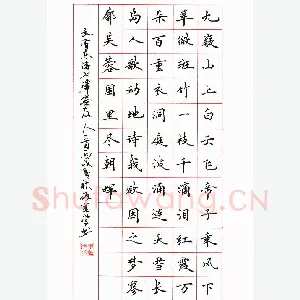 九嶷山上白云飞帝子乘风下
翠微斑竹一枝千滴泪红霞万
朵百重衣洞庭波涌连天雪长
岛人歌动地诗我欲因之梦寥
廓芙蓉国里尽朝晖
毛泽东诗七律答友人
Shufawang.CN